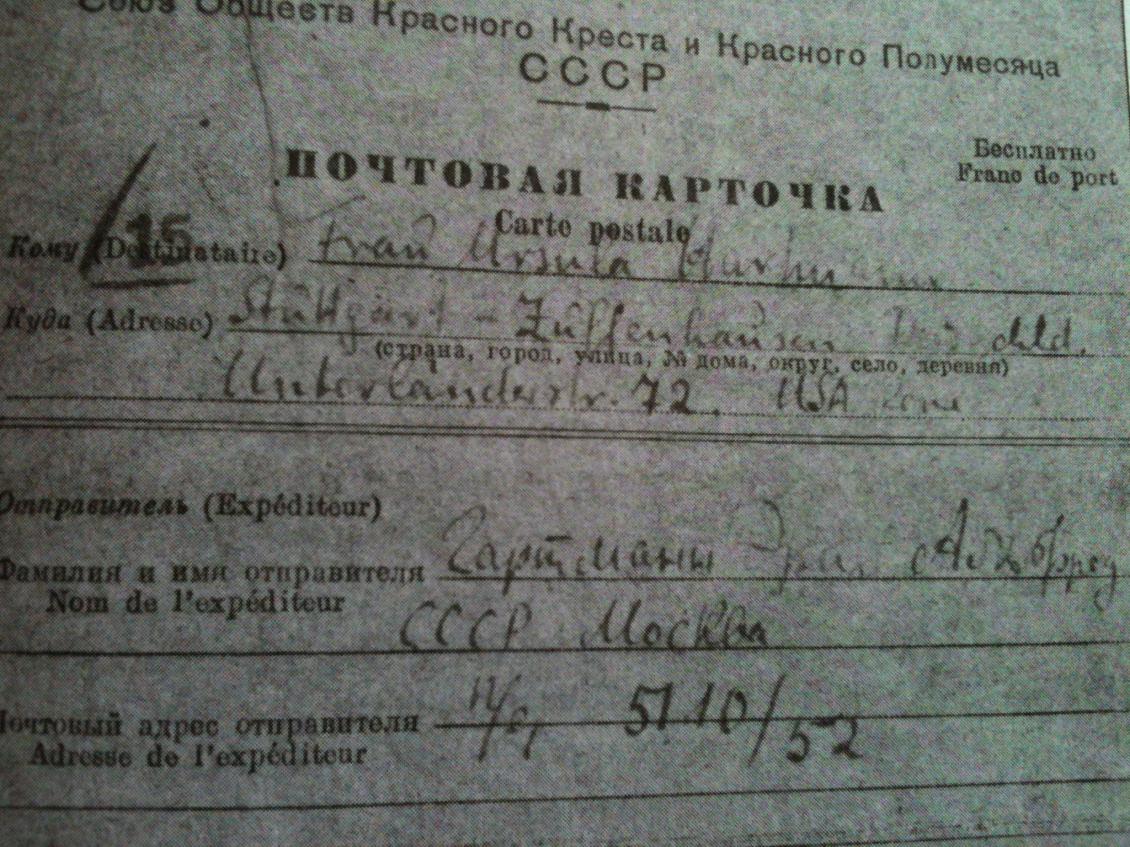 Союз Обществ Красного Креста и Красного Полумесяца
СССР
Бесплатно
Franc de port
ПОЧТОВАЯ КАРТОЧКА
Carte postale
15
Кому (Destinataire) Frau Ursula Hartmann
Куда (Adresse) Stuttgart - Zuffenhausen
(страна, город, улица, № дома, округ, село, деревня)
Unterländerstr. 72. USA Zone
Отправитель (Expéditeur)
Фамилия и имя отправителя Гартманн Эрих Альфред
Nom de l'expéditeur
СССР Москва
Почтовый адрес отправителя 5110/52
Adresse de l'expéditeur